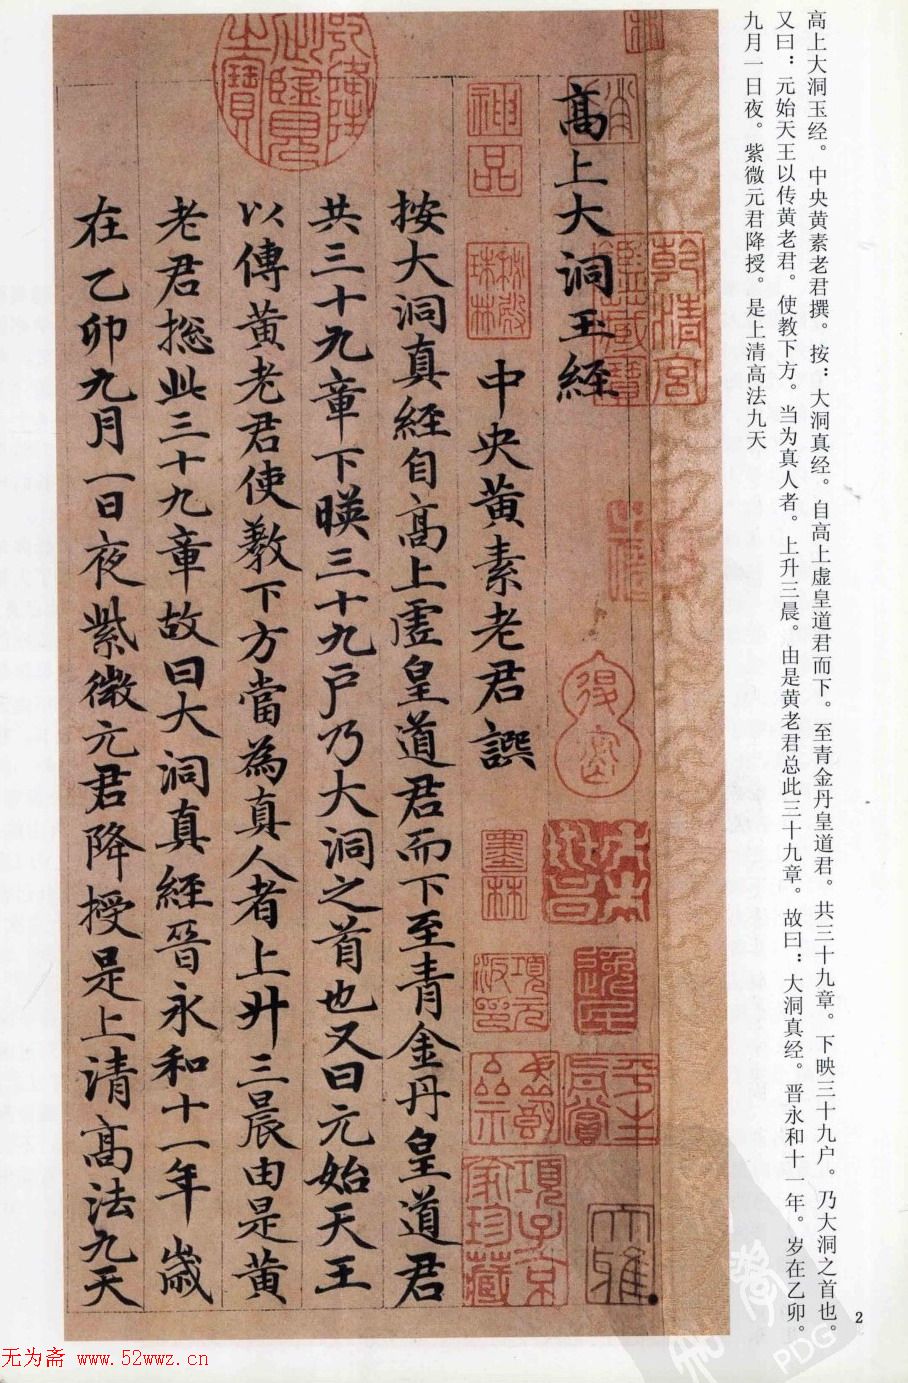 高上大洞玉经。中央黄素老君撰。按：大洞真经。自高上虚皇道君而下。至青金丹皇道君。共三十九章。下映三十九户。乃大洞之首也。
又曰：元始天王以传黄老君。使教下方。当为真人者。上升三晨。由是黄老君总此三十九章。故曰：大洞真经。晋永和十一年。岁在乙卯。
九月一日夜。紫微元君降授。是上清高法九天
高上大洞玉經
中央黄素老君譔
按大洞真經自高上虗皇道君而下至青金丹皇道君
共三十九章下暎三十九户乃大洞之首也又曰元始天王
以傳黄老君使教下方當為真人者上升三晨由是黄
老君揔此三十九章故曰大洞真經晉永和十一年歲
在乙卯九月一日夜紫微元君降授是上清高法九天
乾隆御覽之寶
乾清宮鑒藏寶
神品
墨林
項元汴印
逸民
平生真賞
子孫世昌
項子京家珍藏
2
PDG
无为斋 www.52wwz.cn